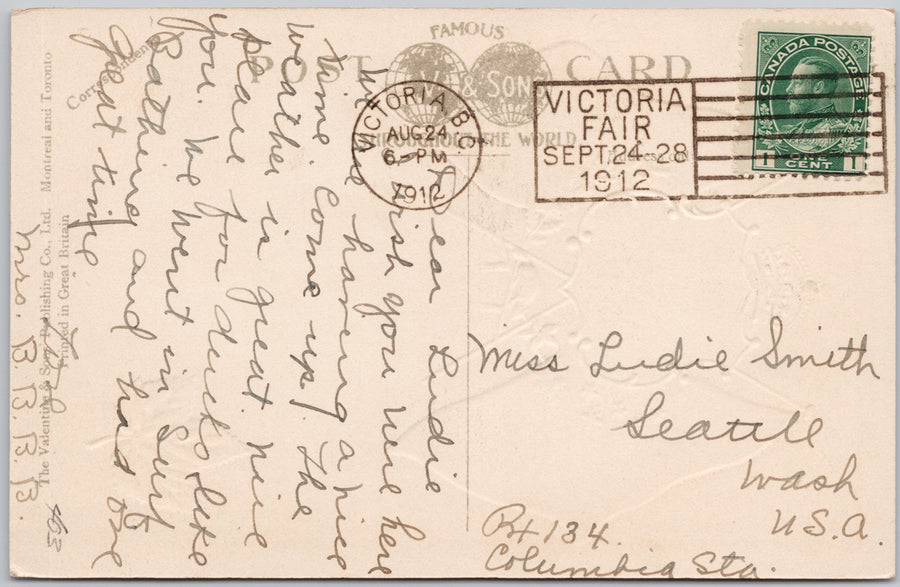 FAMOUS
POST CARD
& SONS
THROUGHOUT THE WORLD
Correspondence
VICTORIA, B.C.
AUG 24
6-PM
1912
VICTORIA
FAIR
SEPT. 24-28
1912
CANADA POSTAGE
1 ONE 1
CENT
Dear Ludie
Wish you were here
We are having a nice
time. Come up. The
weather is great. Nice
place for ducks like
you. We went in Surf
Bathing and had one
great time
Mrs. B. B. B. B.
463
The Valentine & Sons Publishing Co., Ltd. Montreal and Toronto
Printed in Great Britain
Miss Ludie Smith
Seattle
Wash
U.S.A.
Rt 134.
Columbia Sta.